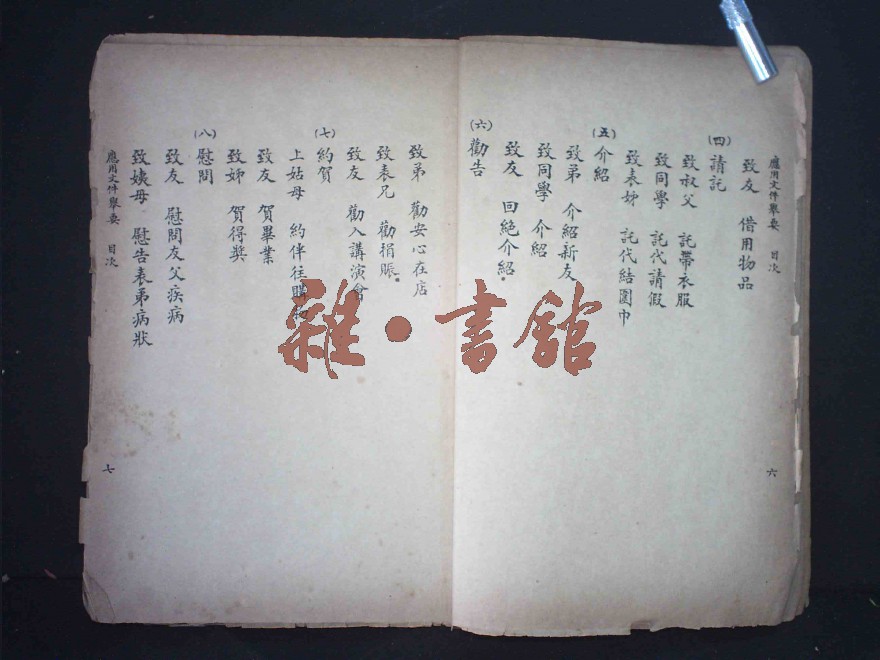 應用文件舉要 目次
六
致友 借用物品
(四)請託
致叔父 託帶衣服
致同學 託代請假
致表姊 託代結圍巾
(五)介紹
致弟 介紹新友
致同學 介紹
致友 回絕介紹
(六)勸告
致弟 勸安心在店
致表兄 勸捐賑
致友 勸入講演會
(七)約賀
上姑母 約伴往購物
致友 賀畢業
致姊 賀得獎
(八)慰問
致友 慰問友父疾病
致姨母 慰告表弟病狀
應用文件舉要 目次
七
雜·書館